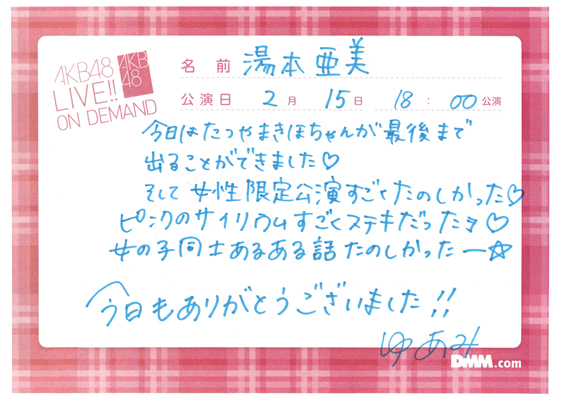 AKB48
LIVE!!
ON DEMAND
AKB
48
名前 湯本亜美
公演日 2月 15日 18:00公演
今日はたつやまきほちゃんが最後まで
出ることができました♡
そして女性限定公演すごくたのしかった♡
ピンクのサイリウムすごくステキだったヨ♡
女の子同士あるある話たのしかったー☆
今日もありがとうございました!!
ゆあみ
DMM.com